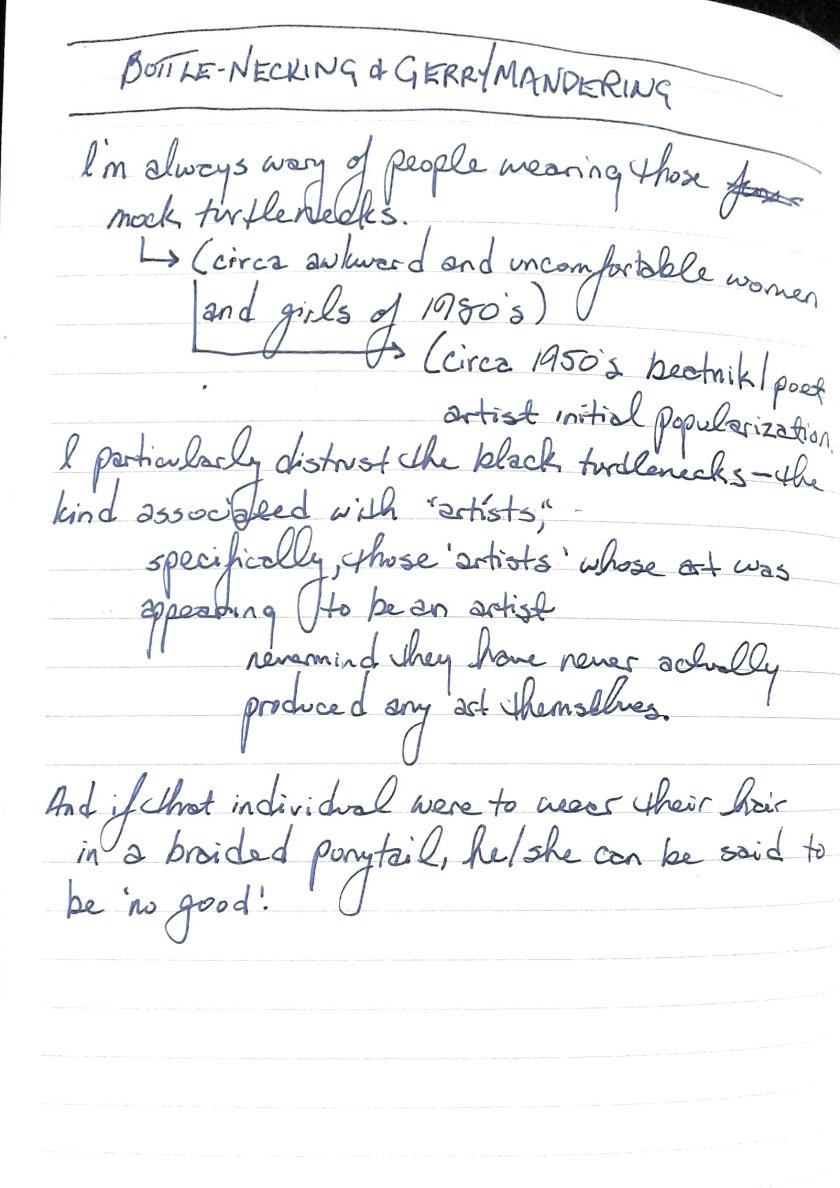 BOTTLE-NECKING & GERRYMANDERING
I'm always wary of people wearing those
mock turtlenecks.
↳ (circa awkward and uncomfortable women
and girls of 1980's)
→ (circa 1950's beatnik/poet
artist initial popularization.
I particularly distrust the black turtlenecks—the
kind associated with "artists,"
specifically, those 'artists' whose art was
appearing to be an artist
nevermind they have never actually
produced any art themselves.
And if that individual were to wear their hair
in a braided ponytail, he/she can be said to
be 'no good'.